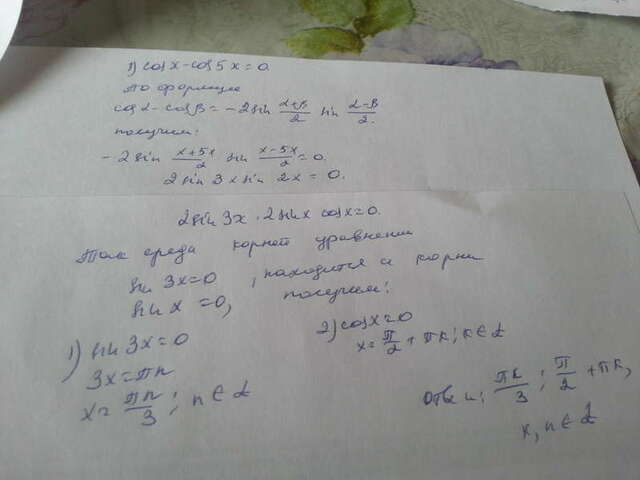 1) cos x - cos 5x = 0
по формуле
cos α - cos β = -2 sin (α+β)/2 sin (α-β)/2.
получим:
-2 sin (x+5x)/2 sin (x-5x)/2 = 0.
2 sin 3x sin 2x = 0.
2 sin 3x · 2 sin x cos x = 0.
Так среди корней уравнения
sin 3x = 0 , находится и корни
sin x = 0, получим:
1) sin 3x = 0
3x = πn
x = πn/3 ; n ∈ Z
2) cos x = 0
x = π/2 + πk ; k ∈ Z
Ответ: πk/3 ; π/2 + πk,
k, n ∈ Z